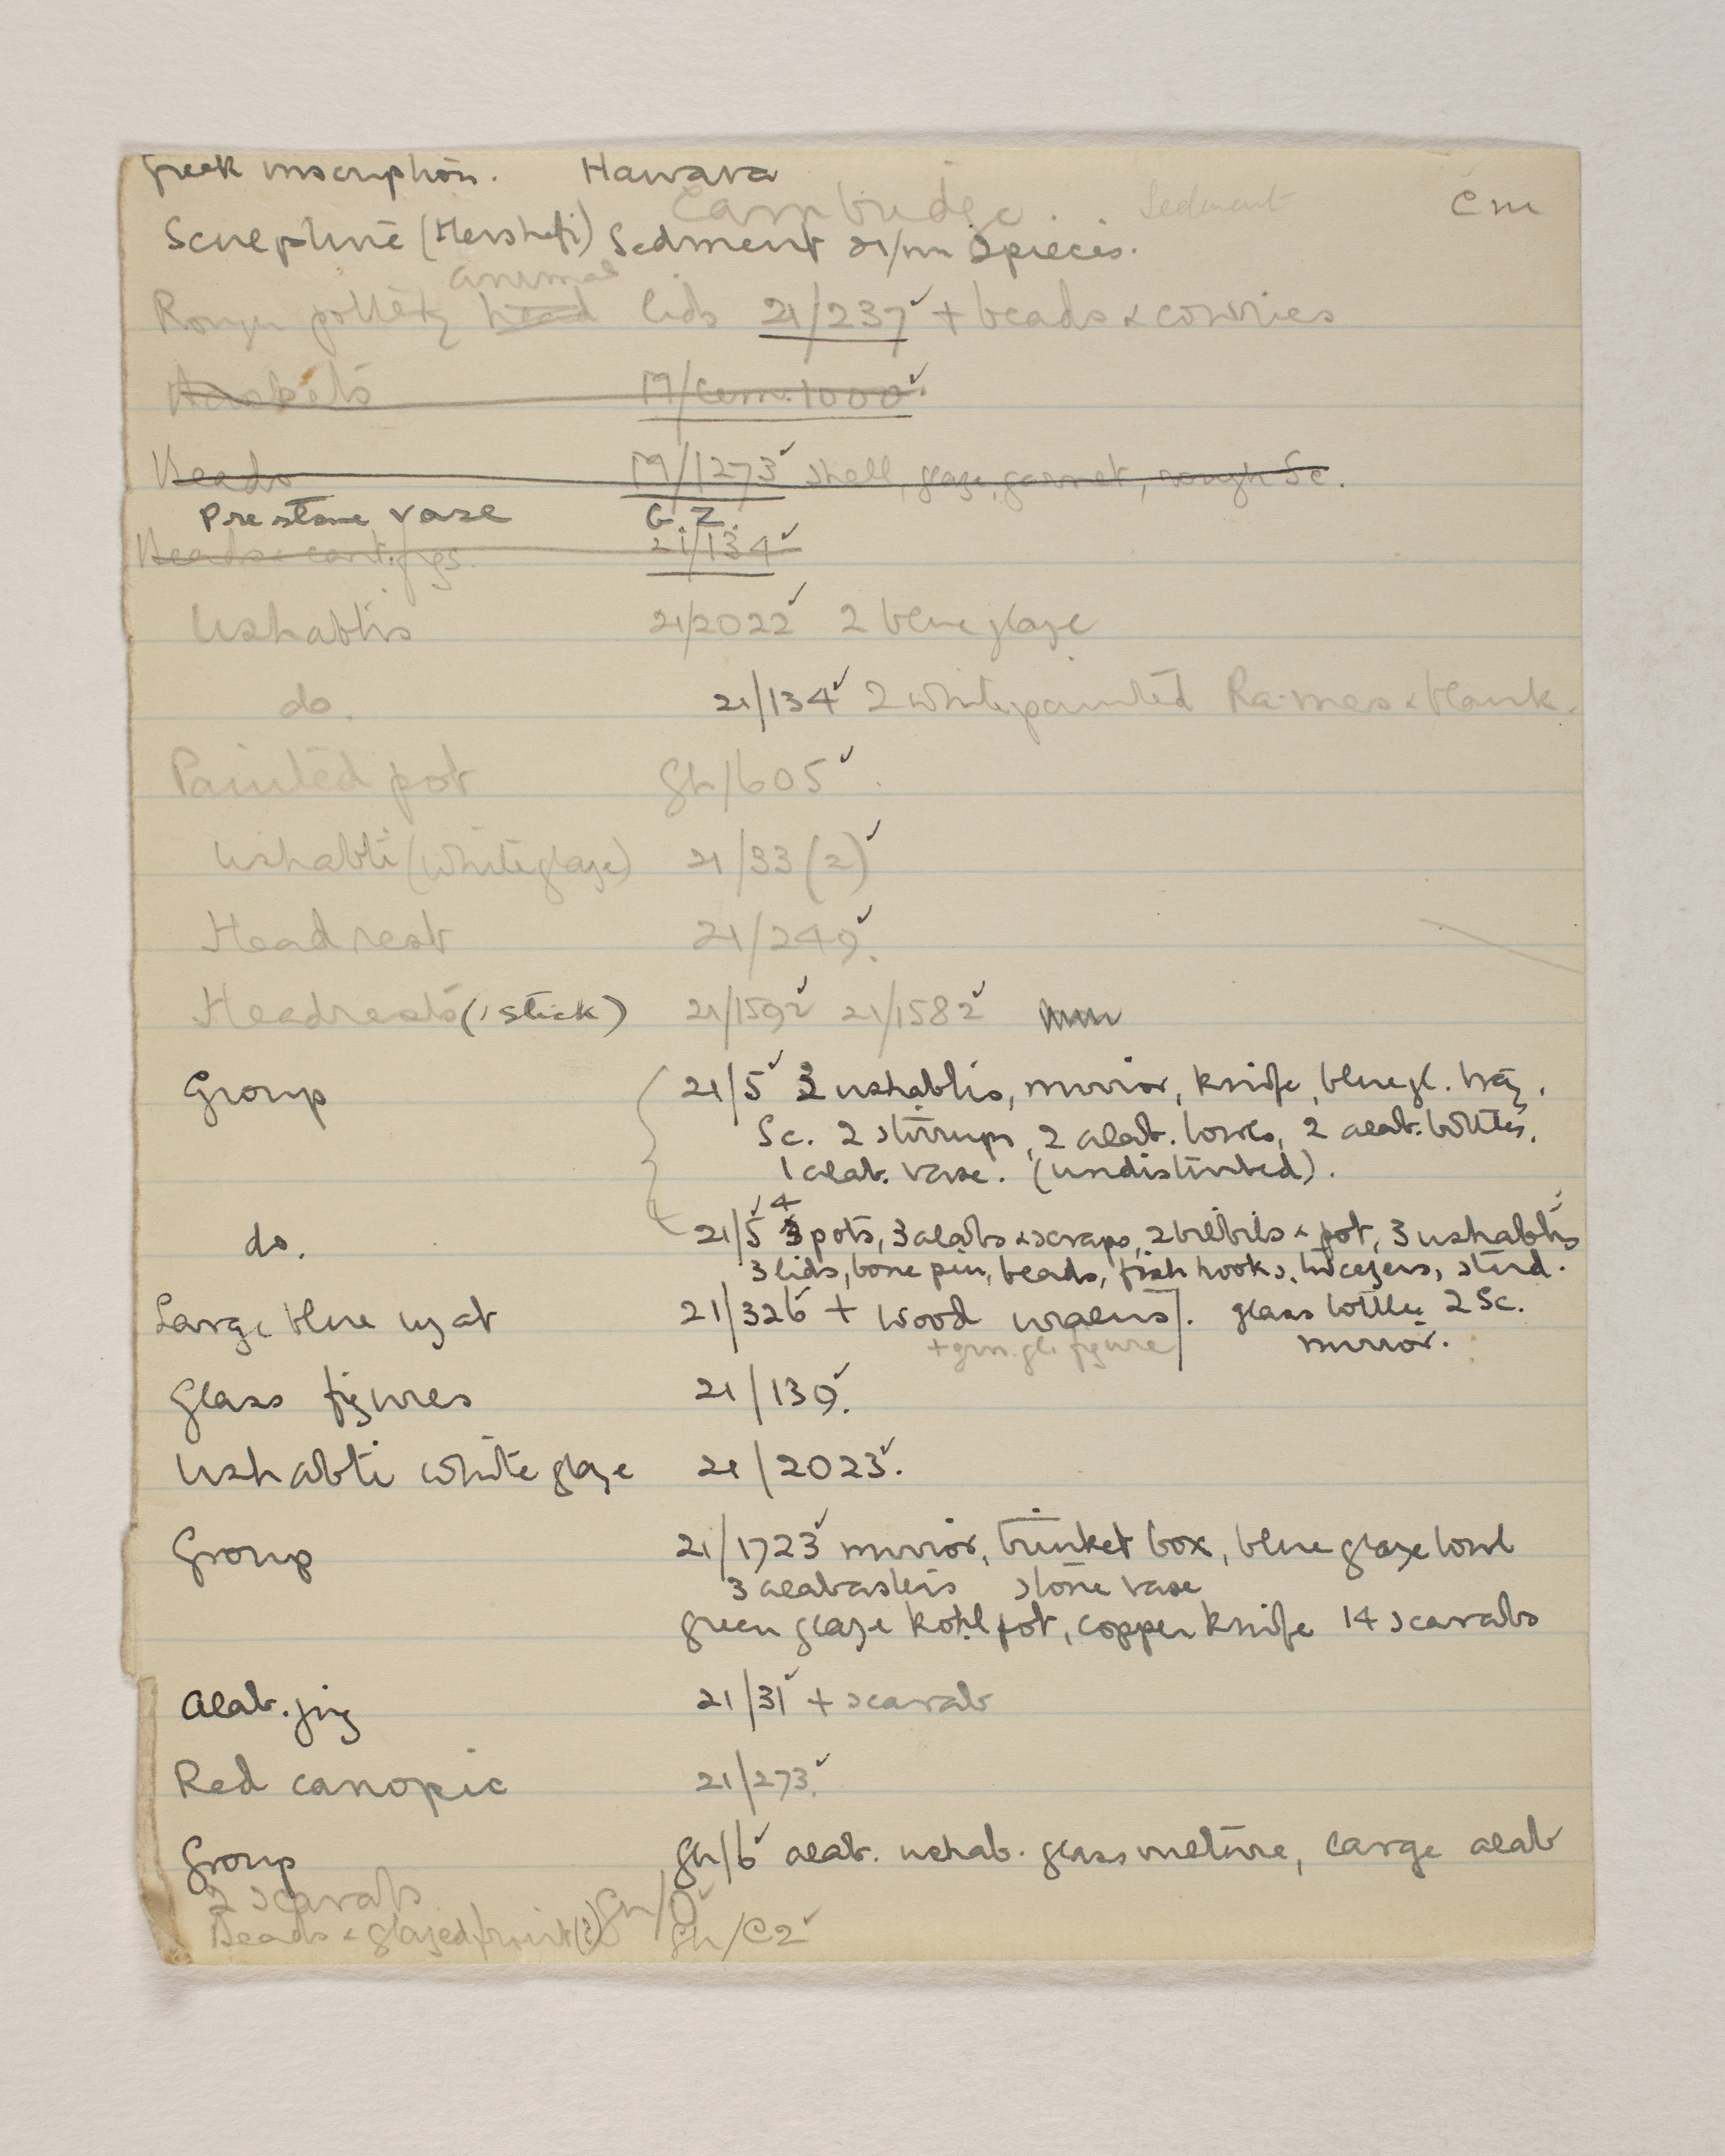 Greek inscription. Hawara
Cambridge. . Sedment Cm
Sculpture (Hershefi) Sedment 21/nn 2 pieces.
animal
Rough pottery head lids 21/237 ✓ + beads & cowries
M/Cem. 1000 ✓.
Beads M/1273 ✓ shell, glaze, garnet, rough Sc.
Pre stone vase G. Z.
Beads & cart. figs. 21/134 ✓
Ushabtis 21/2022 ✓ 2 blue glaze
do. 21/134 ✓ 2 white painted Ra-mes & blank.
Painted pot Gh/605 ✓.
Ushabti (white glaze) 21/33 (2) ✓
Head rest 21/249 ✓.
Headrests (1 stick) 21/1592 ✓ 21/1582 ✓
Group 21/5 ✓ 3 ushabtis, mirror, knife, blue gl.
Sc. 2 stirrups, 2 alab. bowls, 2 alab. bottles,
1 alab. vase. (undisturbed).
do. 21/5 ✓ 4 pots, 3 alabs & scraps, 2 bilbils & pot, 3 ushabtis
3 lids, bone pin, beads, fish hooks, tweezers, stud.
Large blue uzat 21/326 ✓ + wood uraeus]. glass bottle 2 Sc.
+ grn. gl. figure mirror.
Glass figures 21/139 ✓.
Ushabti white glaze 21/2023 ✓.
Group 21/1723 ✓ mirror, trinket box, blue glaze bowl
3 alabasters stone vase
green glaze kohl pot, copper knife 14 scarabs
Alab. jug 21/31 ✓ + scarab
Red canopic 21/273 ✓.
Group Gh/6 ✓ alab. ushab. glass, large alab
2 scarabs Gh/0 ✓
Beads & glazed fruit (?) Gh/C2 ✓